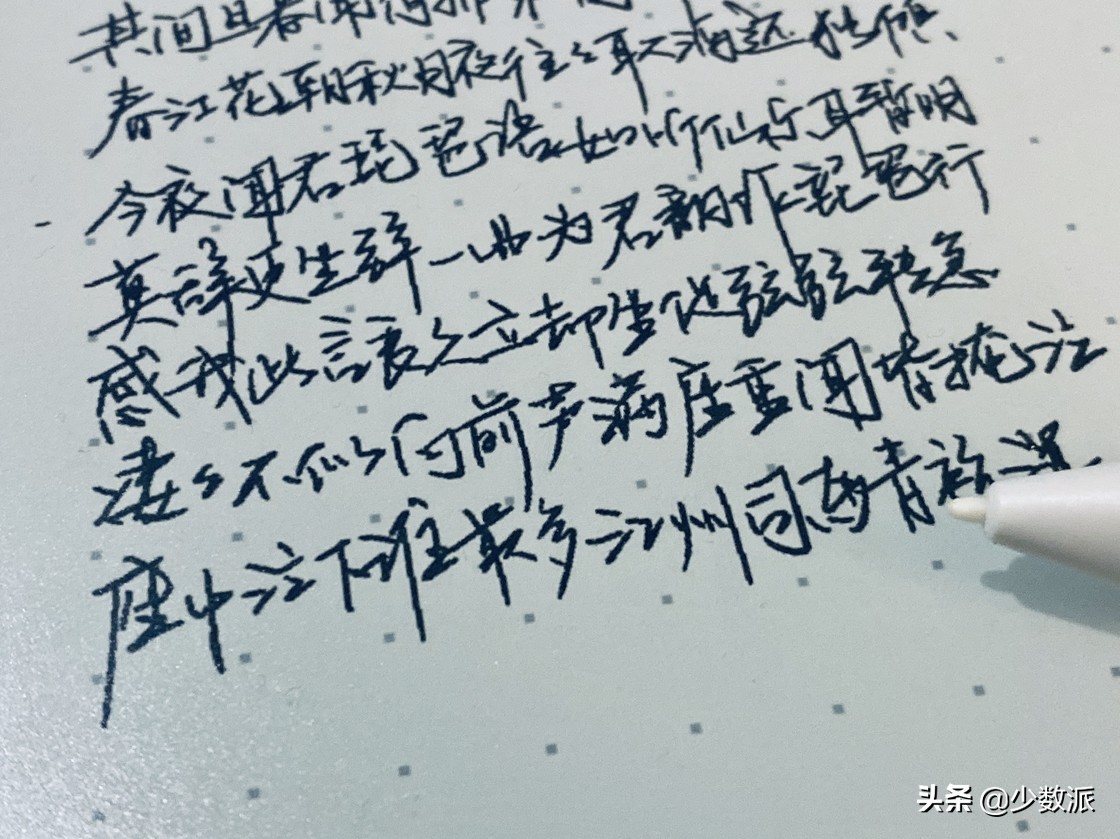 其间旦暮闻何
春江花朝秋月夜往々取酒还独倾
今夜闻君琵琶语如听仙乐耳暂明
莫辞更坐弹一曲为君翻作琵琶行
感我此言良久立却坐促弦弦转急
凄々不似向前声满座重闻皆掩泣
座中泣下谁最多江州司马青衫湿
头条 @少数派